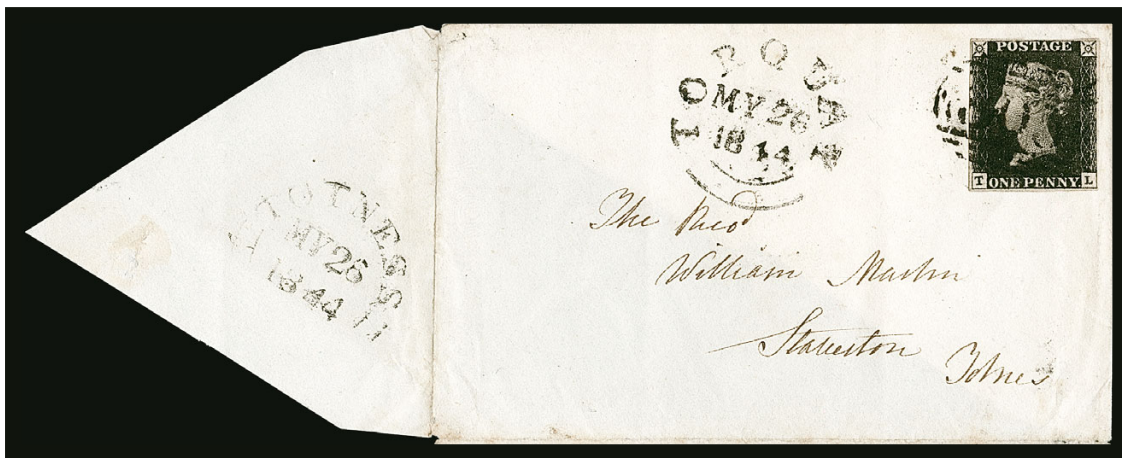 TOTNES
MY 25
1844
TORQUAY
MY 26
1844
POSTAGE
T ONE PENNY. L
The Revd
William Martin
Staverton
Totnes